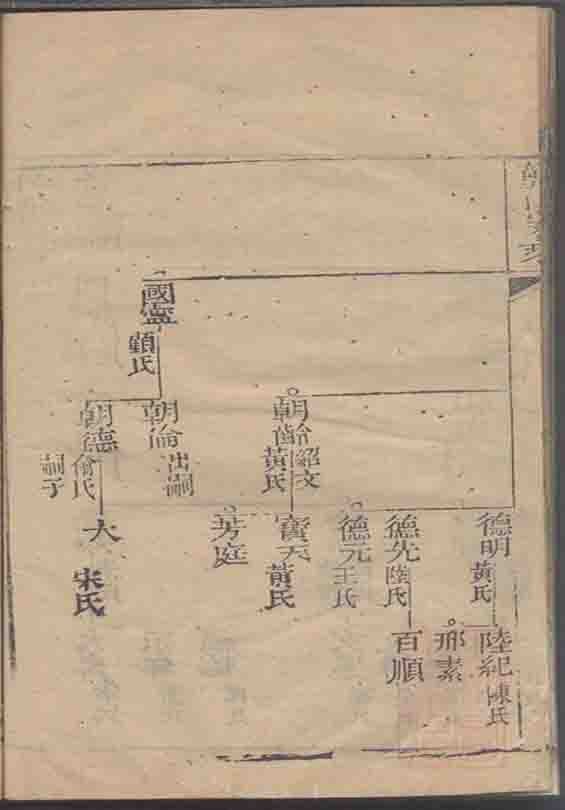 國寧
顧氏
朝齡
紹文
黃氏
朝倫
出嗣
朝德
俞氏
嗣子
德明
黃氏
德先
陸氏
德元
王氏
寶天
黃氏
芳庭
大
宋氏
陸紀
陳氏
邢素
百順